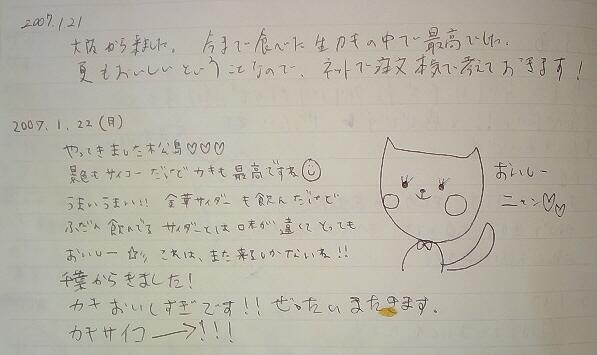 2007.1.21
大阪から来ました。今まで食べた生カキの中で最高でした。
夏もおいしいということなので、ネットで注文本気で考えておきます!
2007.1.22(月)
やってきました松島♡♡♡
景色もサイコーだけどカキも最高ですね
うまいうまい!! 金華サイダーも飲んだけど
ふだん飲んでるサイダーとは味が違くてとっても
おいしー☆彡 これは、また来るしかないね!!
千葉からきました!
カキおいしすぎです!! ぜったいまたきます。
カキサイコー→!!!
おいしー
ニャン♡♡